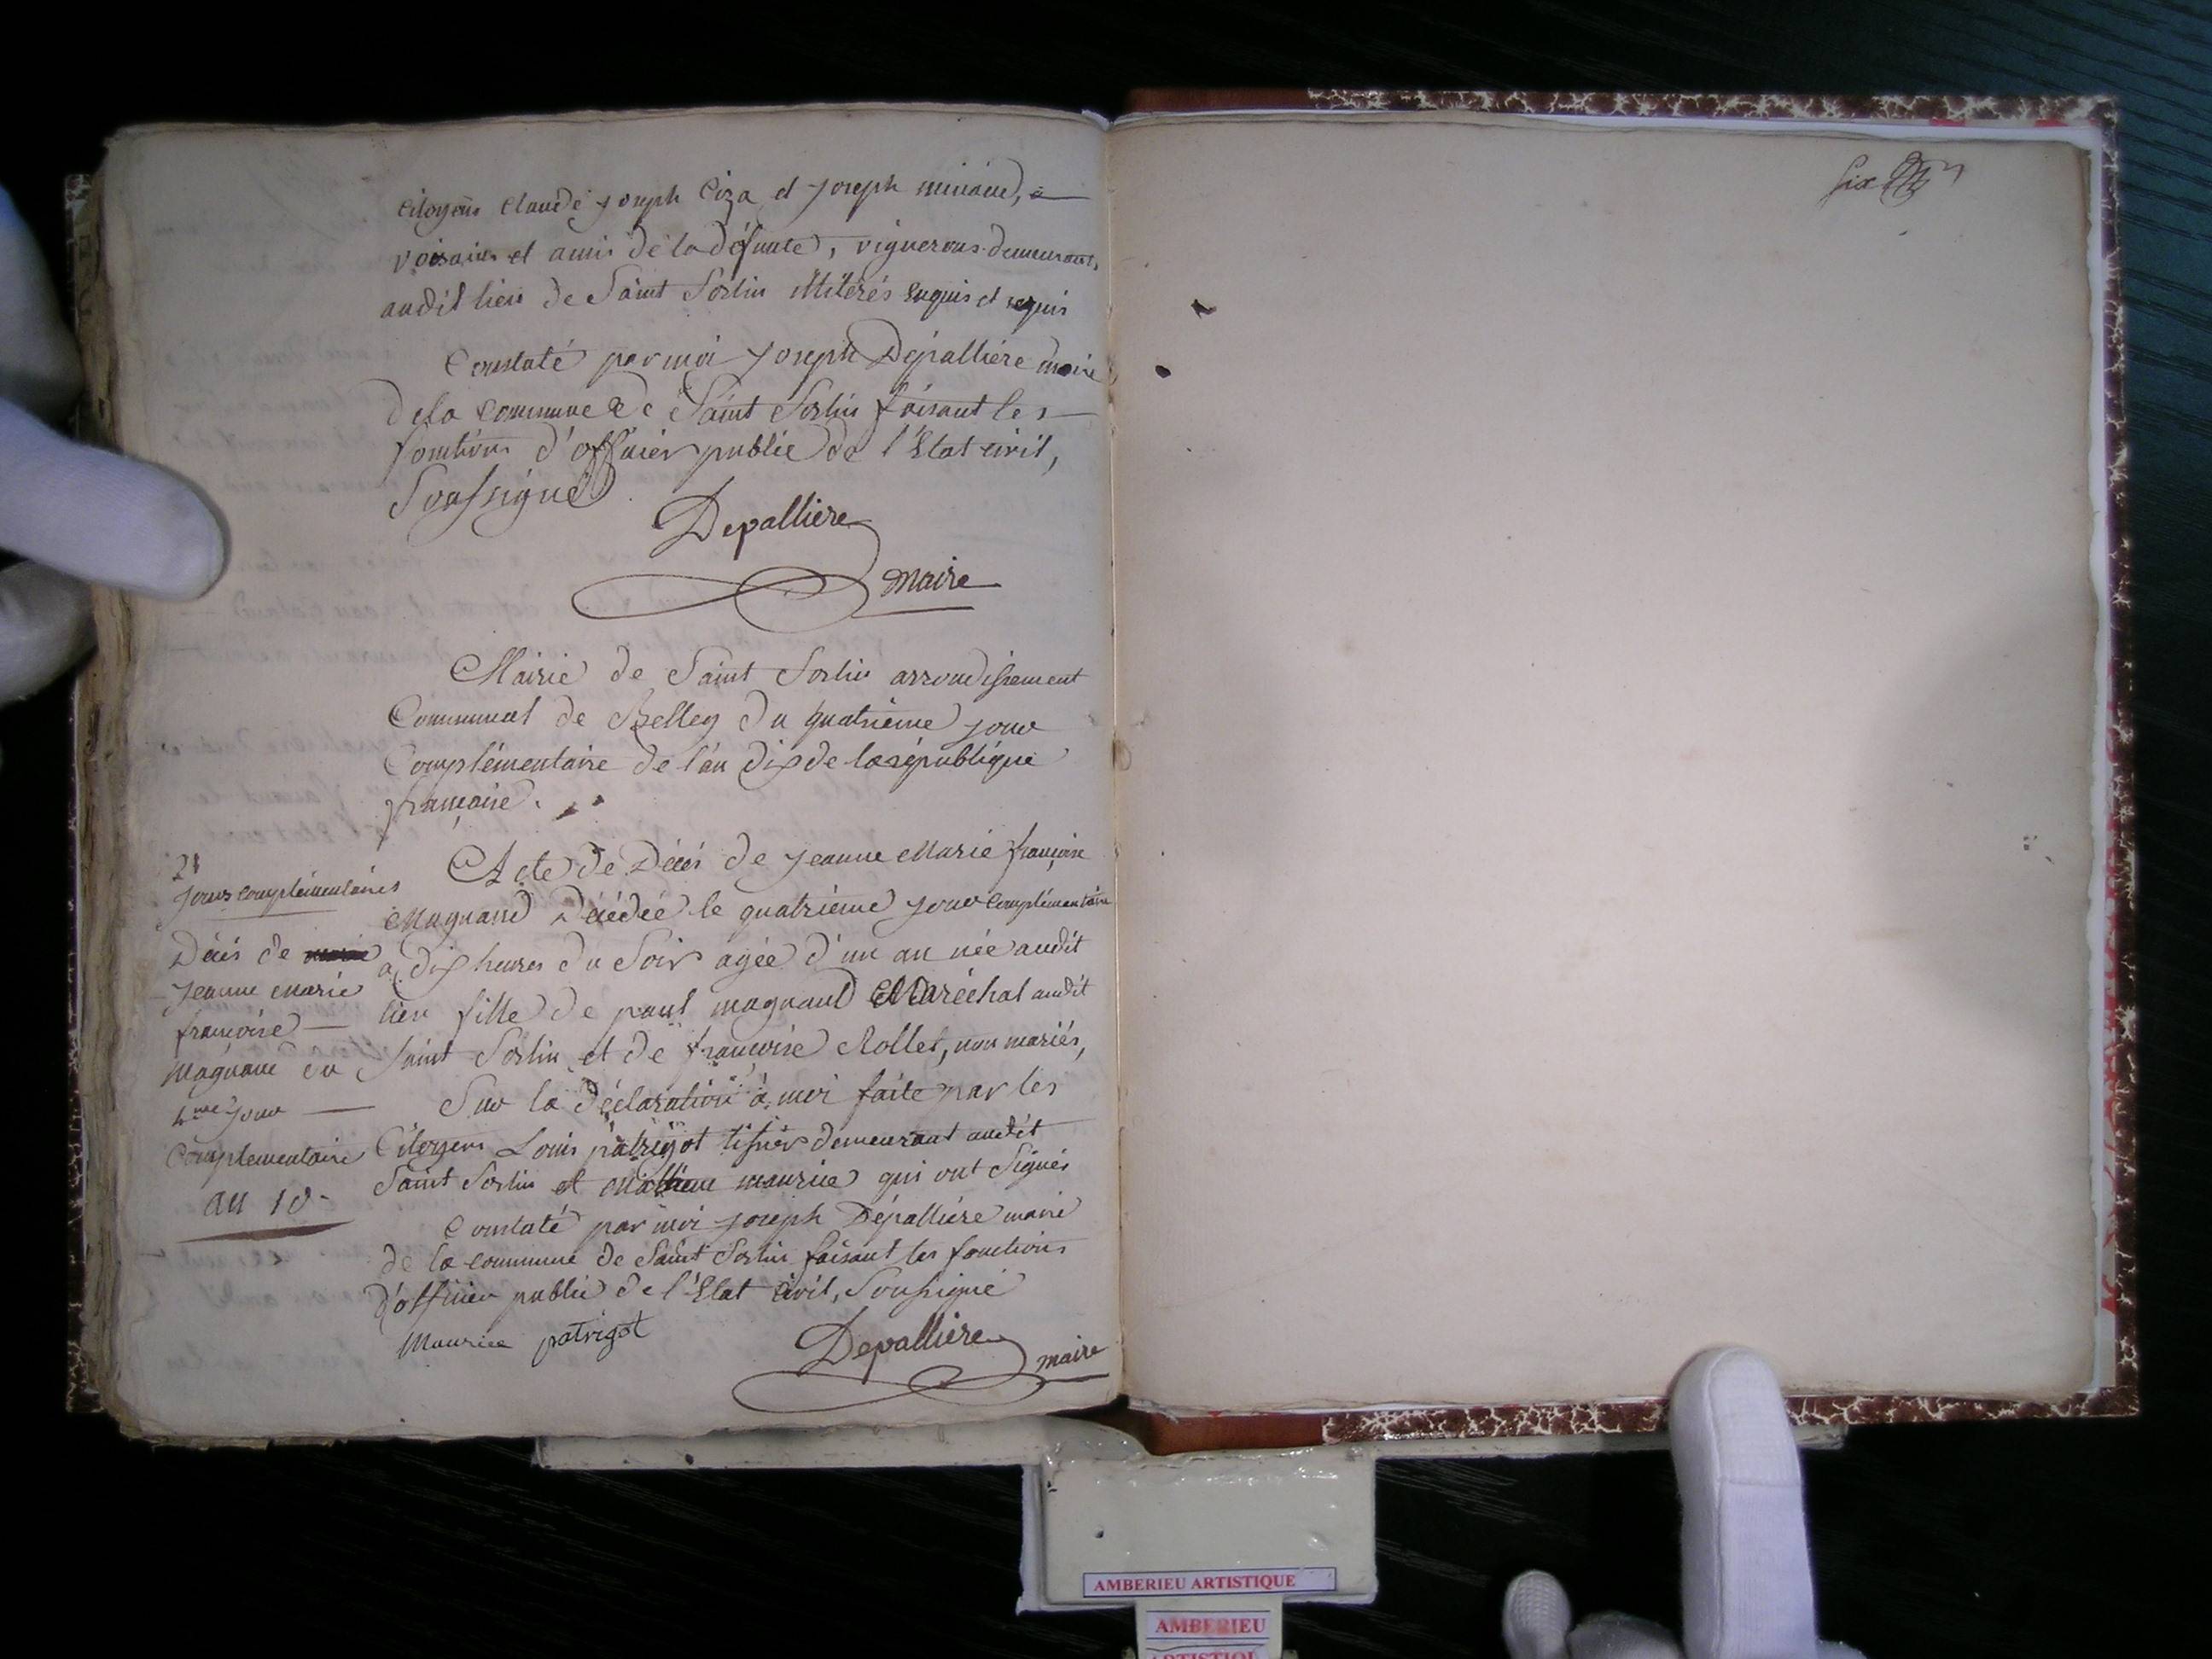 citoyens Claude Joseph Ciza et Joseph minaud, a
voisains et amis de la défunte, vignerons demeurants
audit lieu de Saint Sorlin illiterés enquis et requis
Constaté par moi Joseph Dépallière maire
de la commune de Saint Sorlin faisant les
fonctions d'officier public de l'Etat civil,
Soussigné
Depalliere
maire
Mairie de Saint Sorlin arrondissement
Communal de Belley du quatrieme jour
Complémentaire de l'an dix de la république
françoise.
Acte de Décés de Jeanne Marie françoise
Magnand décédée le quatrieme jour complémentaire
a dix heures du Soir agée d'un an née audit
lieu fille de paul magnand Maréchal audit
Saint Sorlin et de françoise Rollet, non mariés,
Sur la déclaration à moi faite par les
Citoyens Louis patrigot tissier demeurant audit
Saint Sorlin et Mathieu maurice qui ont Signés
Constaté par moi Joseph Dépallière maire
de la commune de Saint Sorlin faisant les fonctions
d'officier public de l'Etat civil, Soussigné
Maurice patrigot
Depalliere
maire
21
jours complémentaires
Décés de
Jeanne Marie
françoise
Magnand du
4me jour
Complementaire
an 10
six
AMBERIEU ARTISTIQUE
AMBERIEU
ARTISTIQUE